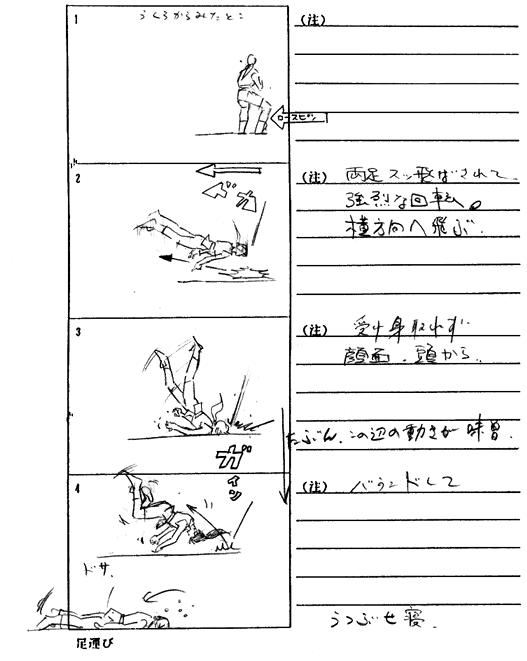 1
うしろからみたとこ
(注)
ロースピン
2
ガガ
(注) 両足スッ飛ばされて
強烈な回転。
横方向へ飛ぶ。
3
ガイン
(注) 受け身取れず
顔面、頭から。
たぶん、この辺の動きが味噌。
4
ドサ、
(注) バウンドして
うつぶせ寝。
足運び